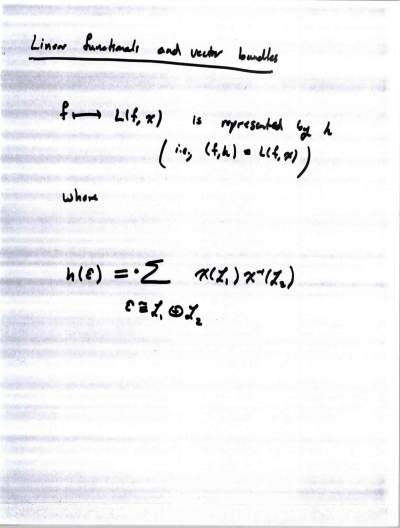 Linear functionals and vector bundles
f ⟼ L(f, χ) is represented by h
(i.e., (f,h) = L(f,χ))
where
h(ℰ) = · ∑ χ(ℒ₁) χ⁻¹(ℒ₂)
ℰ ≅ ℒ₁ ⊕ ℒ₂